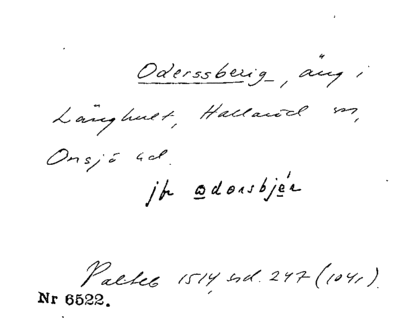 Oderssberig, äng i
Långhult, Hallaröd sn,
Onsjö hd.
jfr odorsbjér
Palteb 1514, sid. 247 (104r).
Nr 6522.